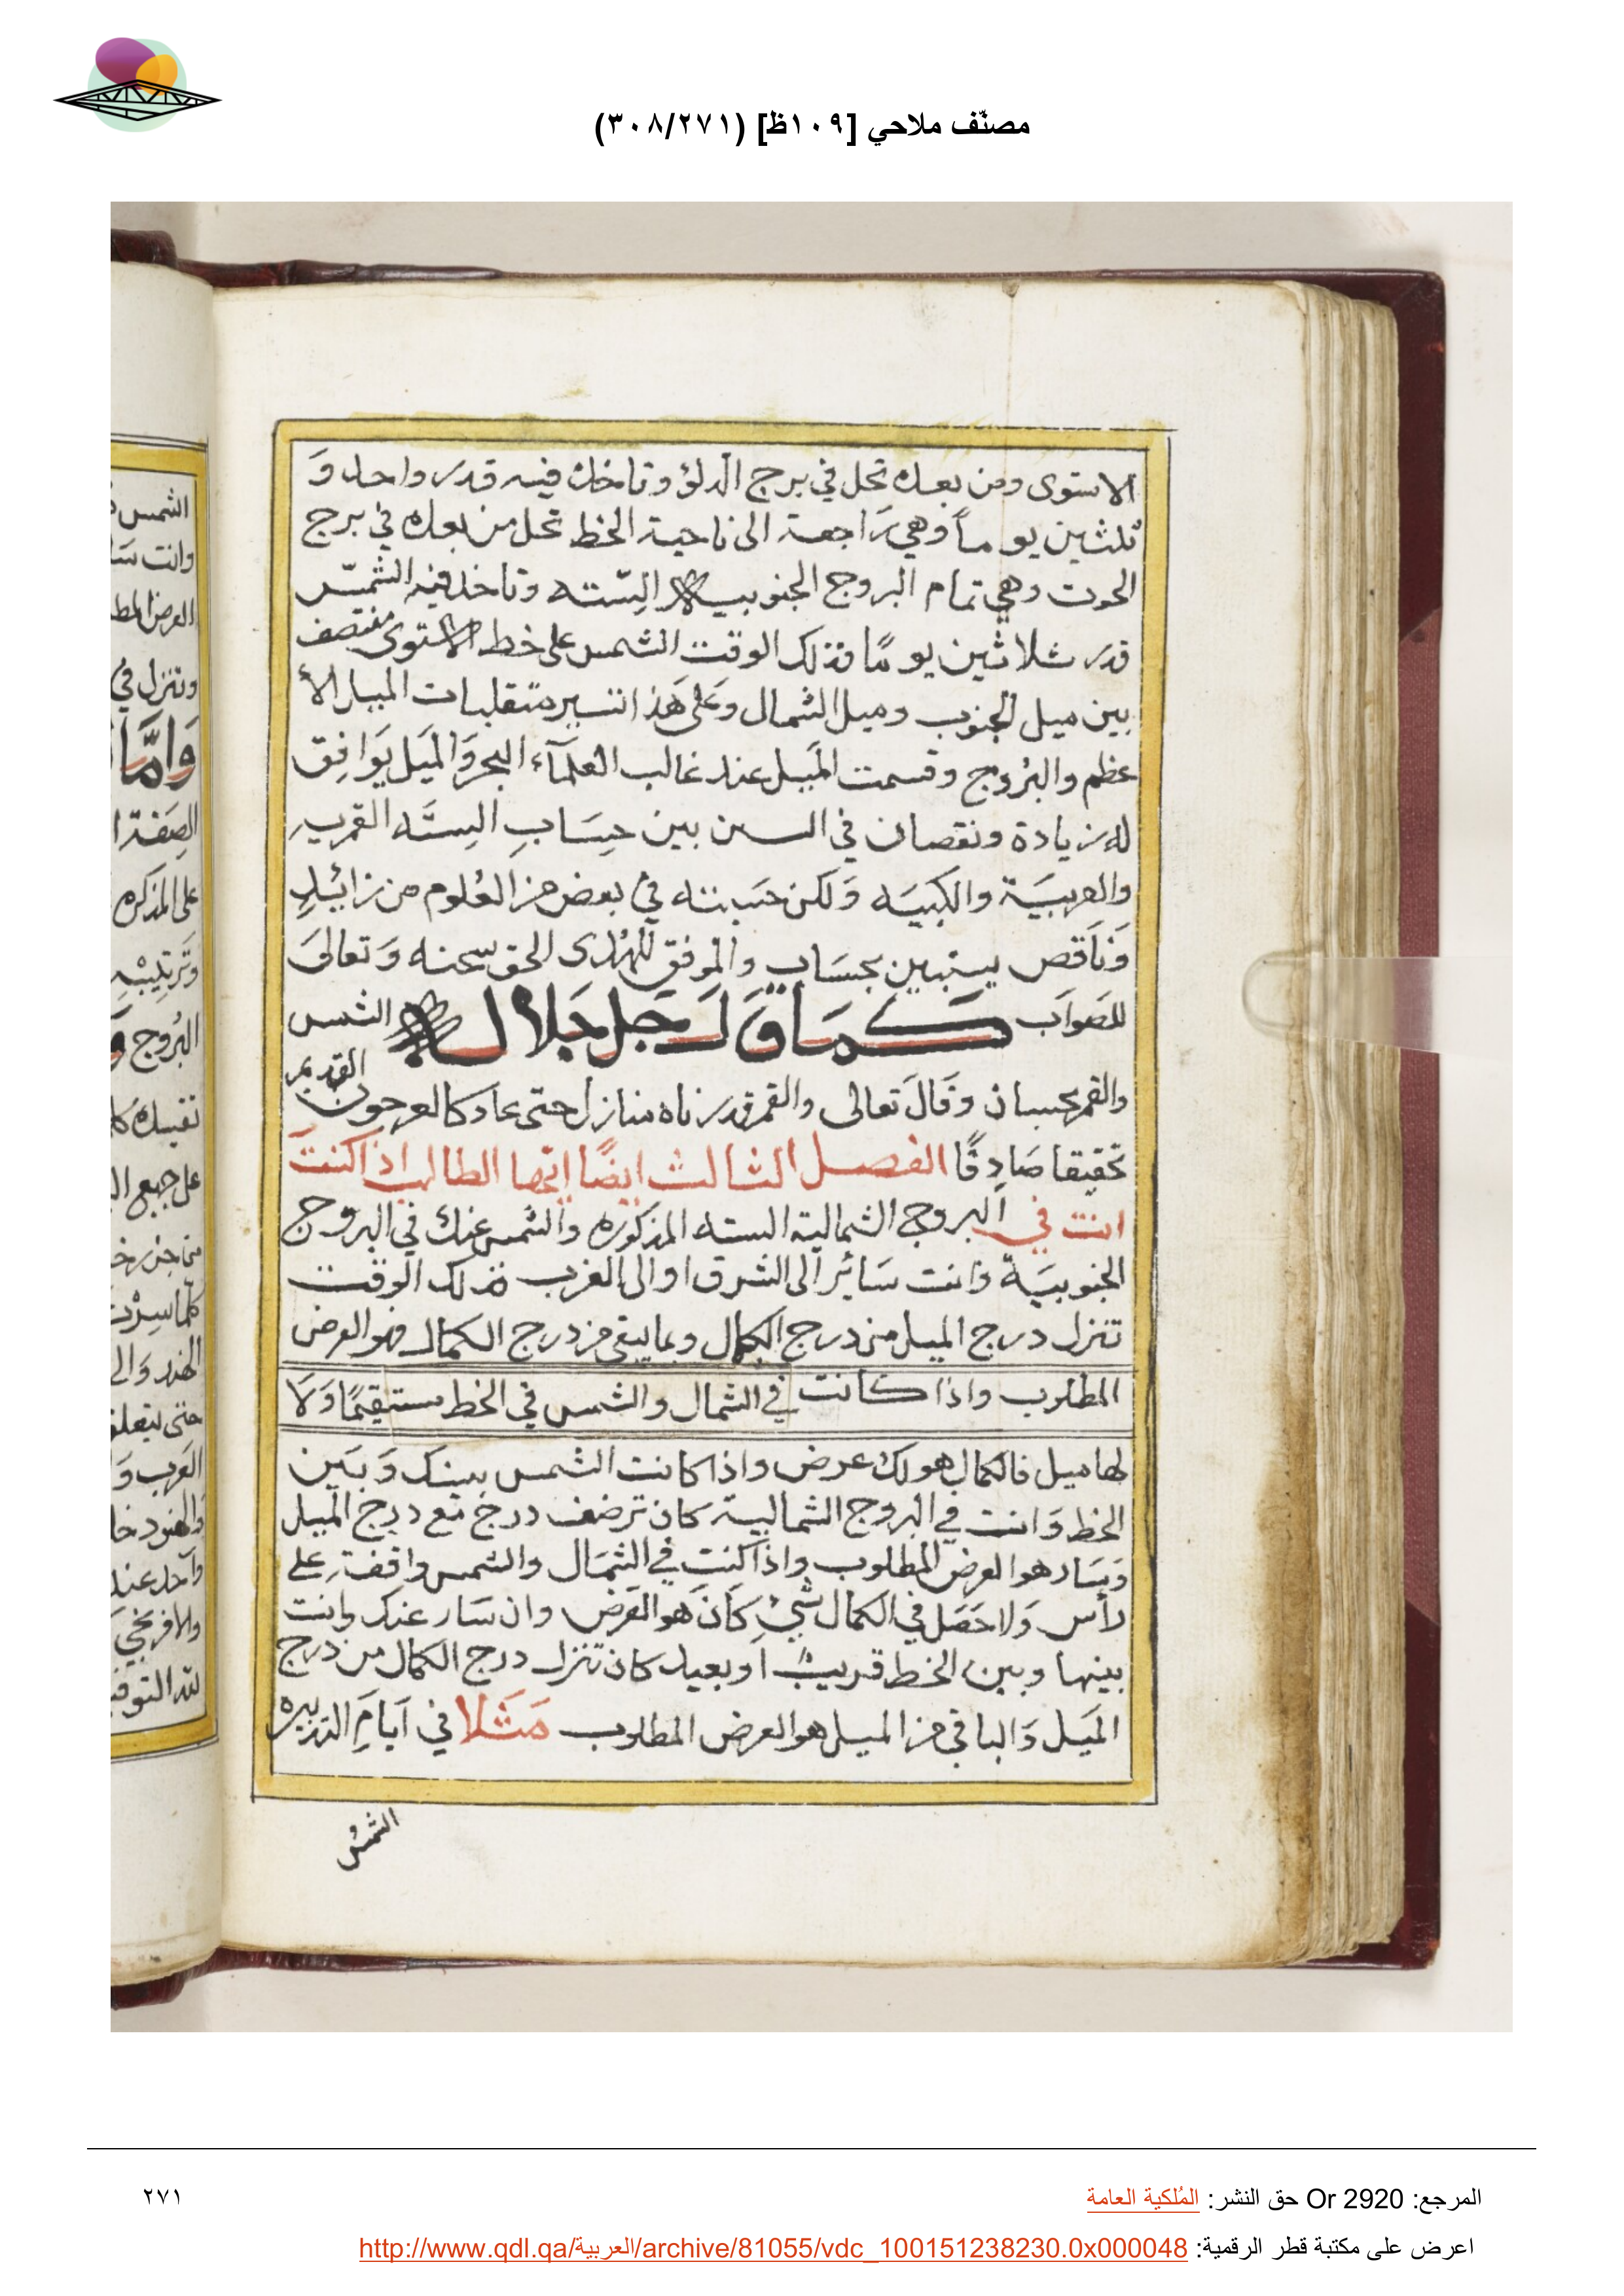 مصنّف ملاحي [١٠٩ظ] (٣٠٨/٢٧١)
الاستوى ومن بعده تحل في برج الدلو وتاخذ فيه قدر واحد وَ
ثلثين يوماً وهي رَاجعة الى ناحية الخط تحل من بعده في برج
الحوت وهي تمام البروج الجنوبيه الستّه وتاخذ فيه الشمسّ
قدر ثلاثين يومًا فذلك الوقت الشمس على خط الاستوى منتصف
بين ميل الجنوب وميل الشمال وَعَلى هَذا تسير متقلبات الميل الأ
عظم والبُروج وقسمت المَيل عند غالب العُلمآء البحر وَالميَل يوَافِق
له زيادة ونقصان في السن بين حِسَابِ السِتَّه القمريه
والعربيَة والكبيَه وَلكن حَسَبته في بعض من العُلوم من زائِدٍ
وَنَاقص يستبين بحسَاب والموفق للهُدى الحق سبحنه وَتعالىَ
للصَوَاب كَمَا قَالَ جَل جَلالـه الشمس
والقمر بحسبان وَقَالَ تعالى والقمر قدرناه منازل حتى عاد كالعرجون القديم
تحقيقا صَادِقًا الفصل الثالث ايضًا ايّها الطالب اذا كنتَ
انت في البروج الشمالية السته المذكوره والشمس عنك في البروج
الجنوبيَة وَانت سَائراً الى الشرق او الى الغرب فذلك الوقت
تنزل درج الميل من درج الكمال وبما يبقى من درج الكمال فهو العرض
المطلوب واذا كانت في الشمال والشمس في الخط مستقيمًا وَلَا
لها ميل فالكمال هو لك عرض واذا كانت الشمس بينك وَبَين
الخط وَانت في البروج الشمالية كان ترضف درج مَع درج المَيل
وَسَار هو العرض المطلوب واذا كنت في الشمَال والشمس واقفة على
رأس وَلا حَصَل في الكمال شَيْءِ كَانَ هَو العَرض وان سَار عنك وانت
بينها وبين الخط قريب اَو بعيد كان تنزل درج الكمال من درج
المَيل وَالباقي من الميل هو العرض المطلوب مَثَلا في اَيامَ
الشمسُ
المرجع: Or 2920 حق النشر: المُلكية العامة
٢٧١
اعرض على مكتبة قطر الرقمية: http://www.qdl.qa/العربية/archive/81055/vdc_100151238230.0x000048